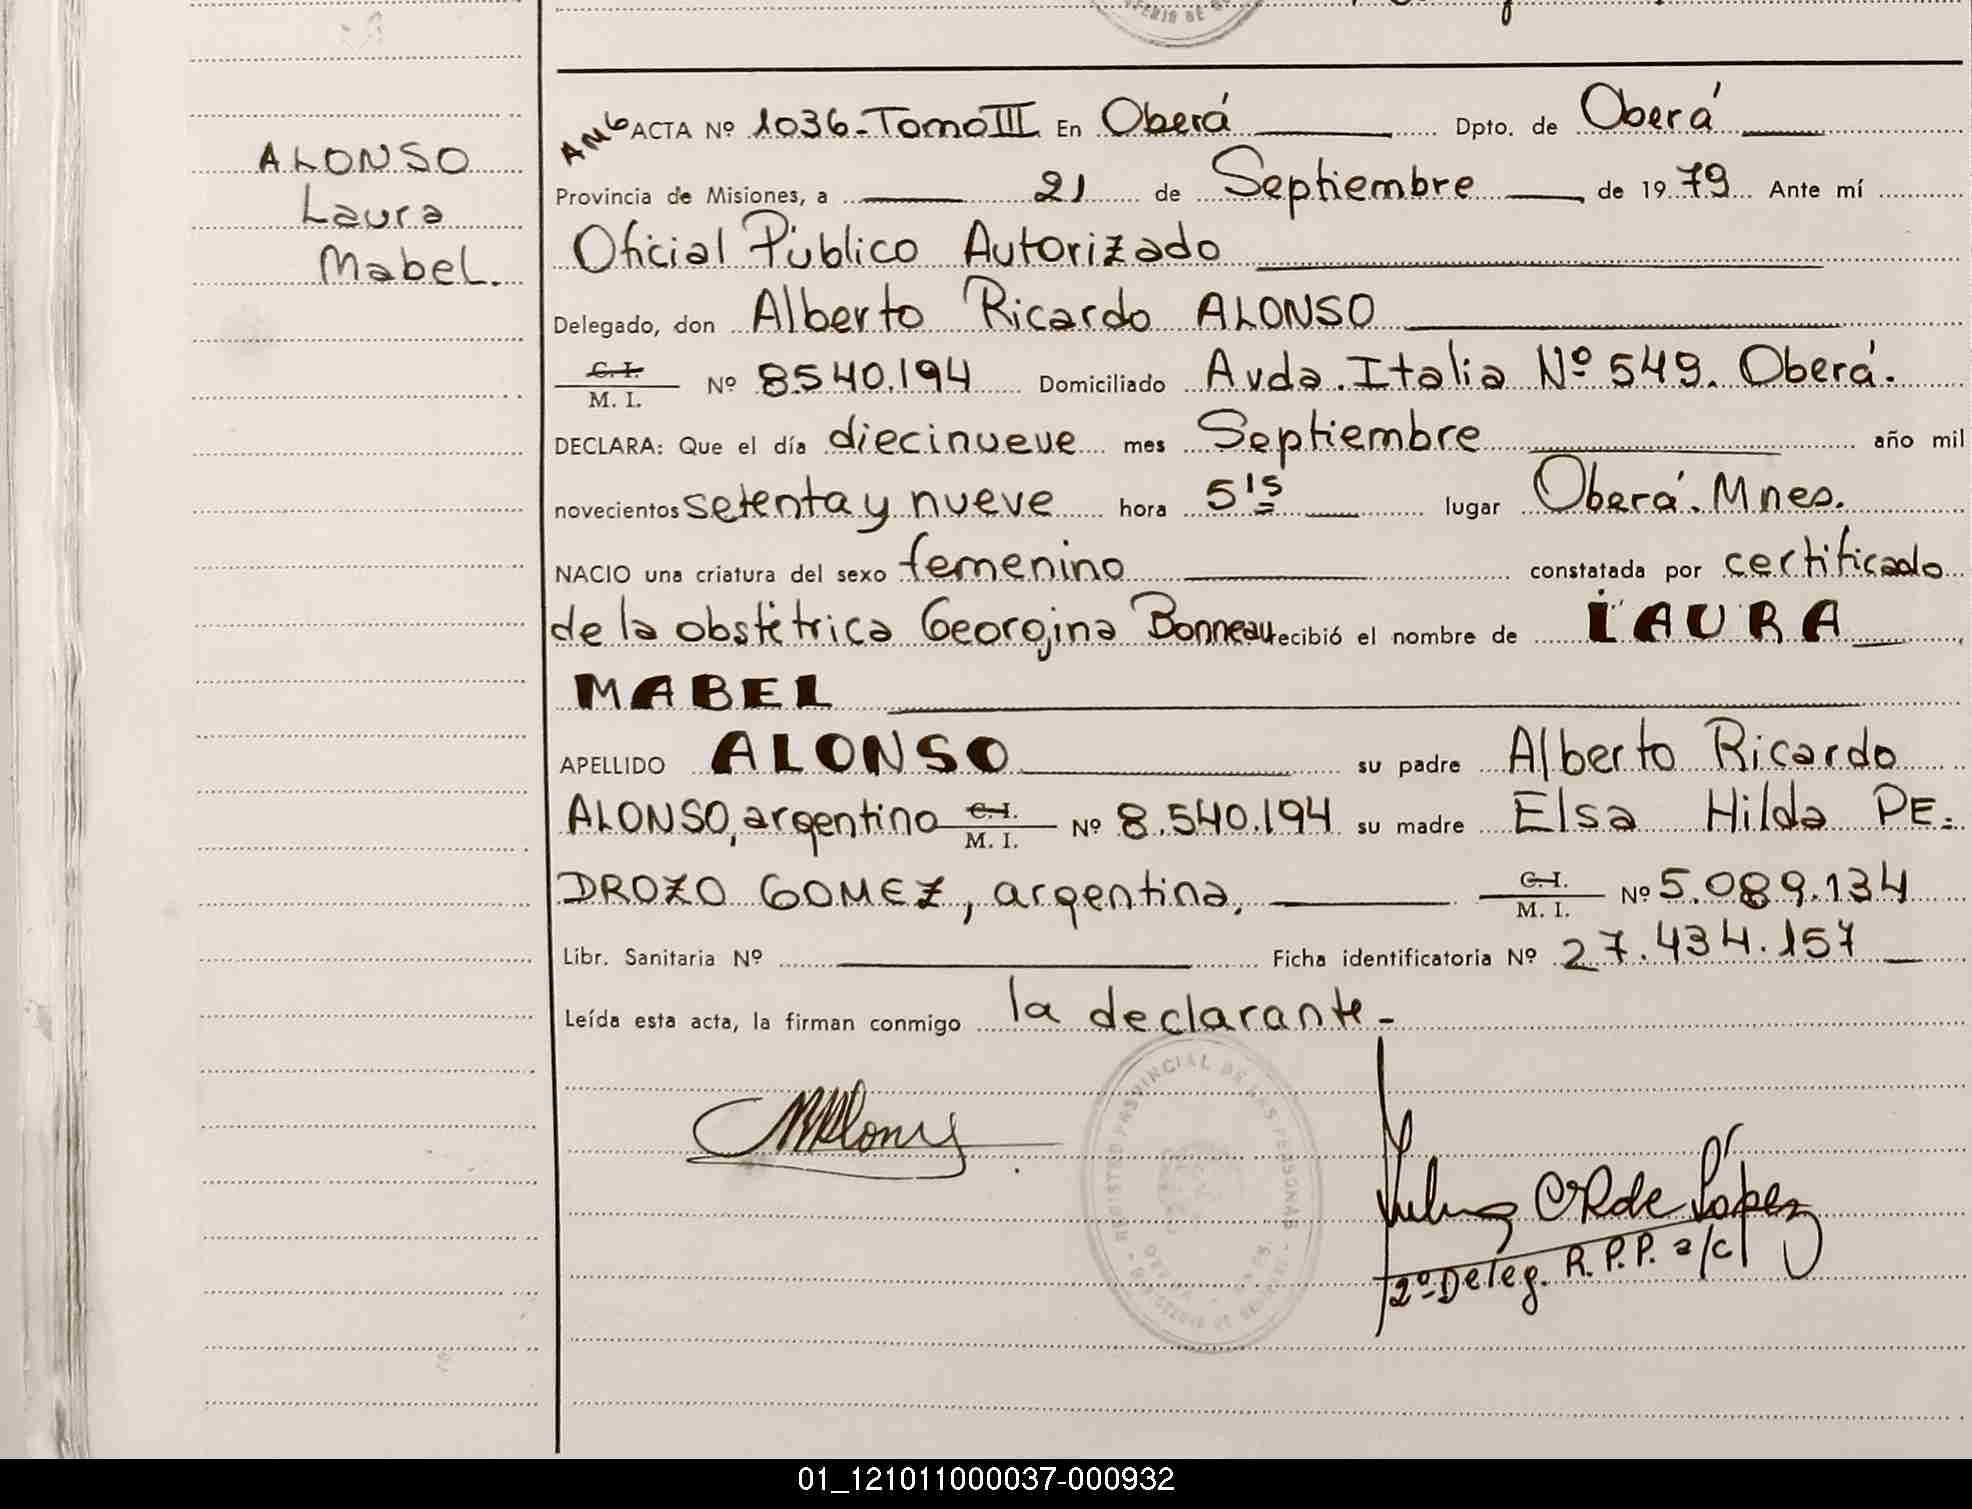 ALONSO
Laura
Mabel.
ACTA Nº 1036-Tomo III En Oberá Dpto. de Oberá
Provincia de Misiones, a 21 de Septiembre de 1979 Ante mí
Oficial Público Autorizado
Delegado, don Alberto Ricardo ALONSO
C. I.
M. I. Nº 8540.194 Domiciliado Avda. Italia Nº 549. Oberá.
DECLARA: Que el día diecinueve mes Septiembre año mil
novecientos setenta y nueve hora 5 15 lugar Oberá. Mnes.
NACIO una criatura del sexo femenino constatada por certificado
de la obstétrica Georgina Bonneau recibió el nombre de LAURA
MABEL
APELLIDO ALONSO su padre Alberto Ricardo
ALONSO, argentino C. I. M. I. Nº 8.540.194 su madre Elsa Hilda PE=
DROZO GOMEZ, argentina, C. I. M. I. Nº 5.089.134
Libr. Sanitaria Nº Ficha identificatoria Nº 27.434.157
Leída esta acta, la firman conmigo la declarante-
REGISTRO PROVINCIAL DE LAS PERSONAS
de López
2º Deleg. R.P.P. a/c
01_121011000037-000932